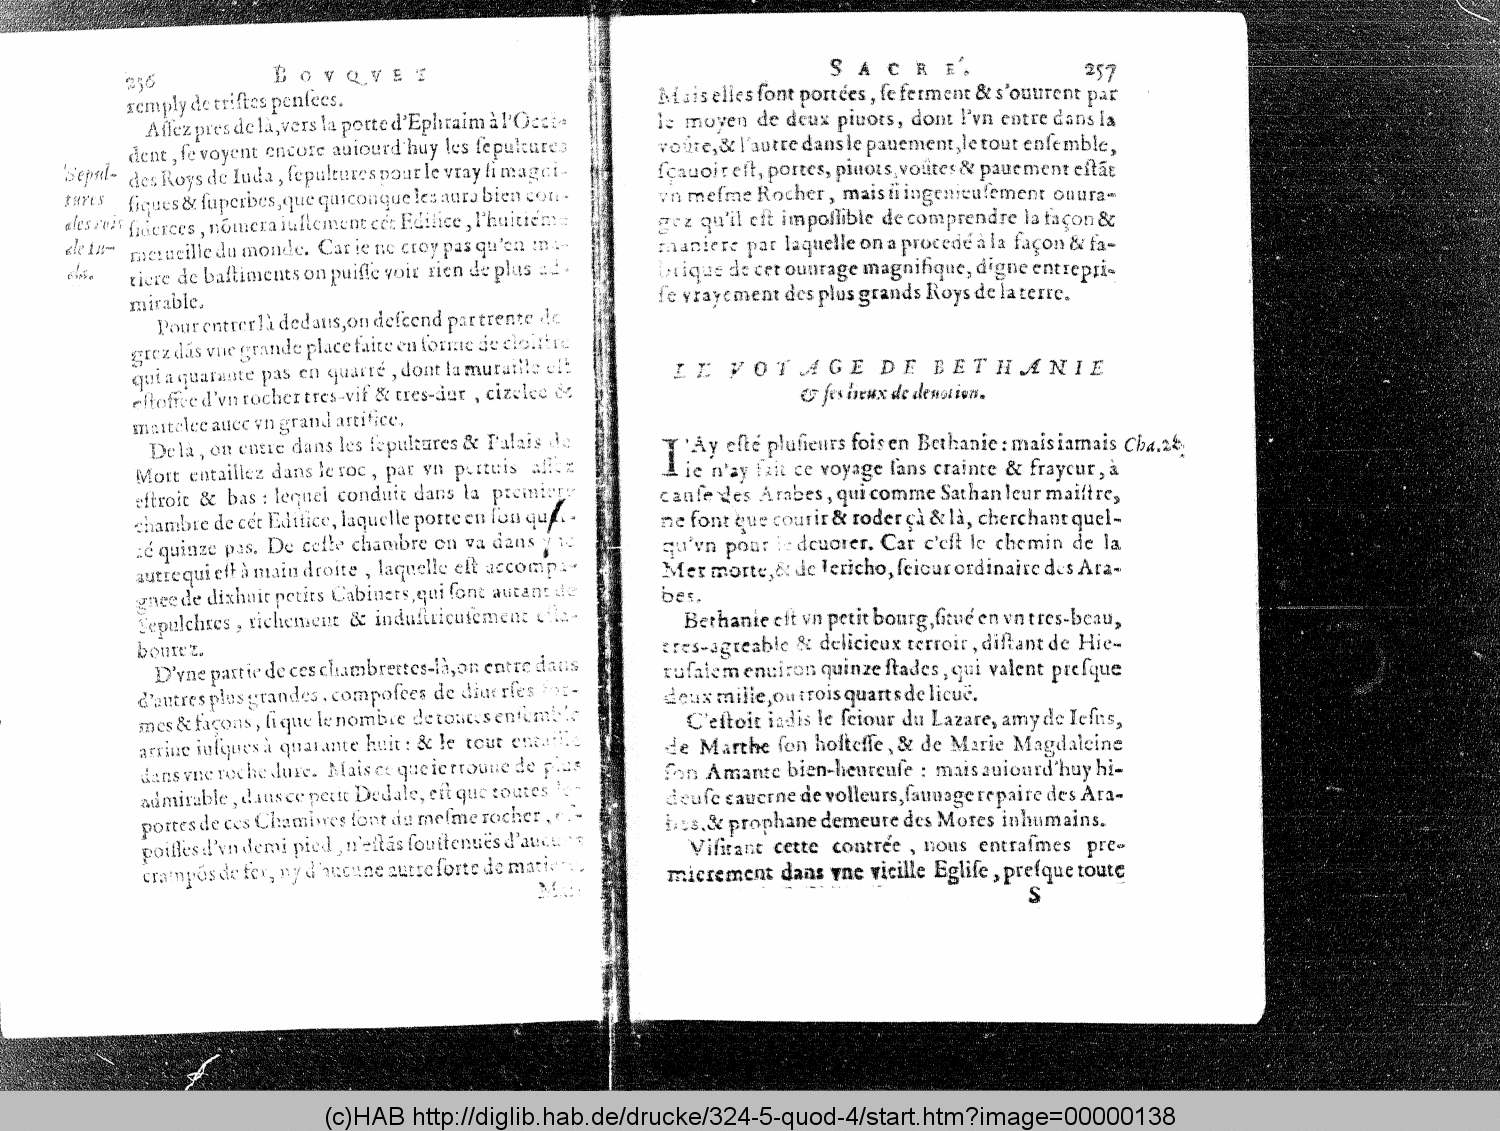 256 BOVQVET
remply de tristes pensees.
Assez pres de là, vers la porte d'Ephraim à l'Occi-
dent, se voyent encore auiourd'huy les sepultures
des Roys de Iuda, sepultures pour le vray si magni-
fiques & superbes, que quiconque les aura bien con-
siderees, nõmera iustement cét Edifice, l'huitiéme
merueille du monde. Car ie ne croy pas qu'en ma-
tiere de bastiments on puisse voir rien de plus ad-
mirable.
Sepul-
tures
des rois
de Iu-
da.
Pour entrer là dedans, on descend par trente de
grez dãs vne grande place faite en forme de cloistre
qui a quarante pas en quarré, dont la muraille est
estoffee d'vn rocher tres-vif & tres-dur, cizelee &
martelee auec vn grand artifice.
De là, on entre dans les sepultures & Palais de
Mort entaillez dans le roc, par vn pertuis assez
estroit & bas: lequel conduit dans la premiere
chambre de cét Edifice, laquelle porte en son quar-
ré quinze pas. De ceste chambre on va dans vne
autre qui est à main droite, laquelle est accompa-
gnee de dixhuit petits Cabinets, qui sont autant de
Sepulchres, richement & industrieusement elabourez.
D'vne partie de ces chambrettes-là, on entre dans
d'autres plus grandes, composees de diuerses for-
mes & façons, si que le nombre de toutes ensemble
arriue iusques à quarante huit: & le tout entaillé
dans vne roche dure. Mais ce que ie trouue de plus
admirable, dans ce petit Dedale, est que toutes les
portes de ces Chambres sont du mesme rocher,
poisses d'vn demi pied, n'estãs soustenuës d'aucuns
crampõs de fer, ny d'aucune autre sorte de matiere.
Mais
SACRE'. 257
Mais elles sont portées, se ferment & s'ouurent par
le moyen de deux piuots, dont l'vn entre dans la
voûte, & l'autre dans le pauement, le tout ensemble,
sçauoir est, portes, piuots, voûtes & pauement estãt
vn mesme Rocher, mais si ingenieusement ouura-
gez qu'il est impossible de comprendre la façon &
maniere par laquelle on a procedé à la façon & fa-
brique de cet ouurage magnifique, digne entrepri-
se vrayement des plus grands Roys de la terre.
LE VOYAGE DE BETHANIE
& ses lieux de deuotion.
I'Ay esté plusieurs fois en Bethanie: mais iamais Cha.28.
ie n'ay fait ce voyage sans crainte & frayeur, à
cause des Arabes, qui comme Sathan leur maistre,
ne font que courir & roder çà & là, cherchant quel-
qu'vn pour le deuorer. Car c'est le chemin de la
Mer morte, & de Iericho, seiour ordinaire des Ara-
bes.
Bethanie est vn petit bourg, situé en vn tres-beau,
tres-agreable & delicieux terroir, distant de Hie-
rusalem enuiron quinze stades, qui valent presque
deux mille, ou trois quarts de lieuë.
C'estoit iadis le seiour du Lazare, amy de Iesus,
de Marthe son hostesse, & de Marie Magdaleine
son Amante bien-heureuse: mais auiourd'huy hi-
deuse cauerne de volleurs, sauuage repaire des Ara-
bes, & prophane demeure des Mores inhumains.
Visitant cette contrée, nous entrasmes pre-
mierement dans vne vieille Eglise, presque toute
S
(c)HAB http://diglib.hab.de/drucke/324-5-quod-4/start.htm?image=00000138